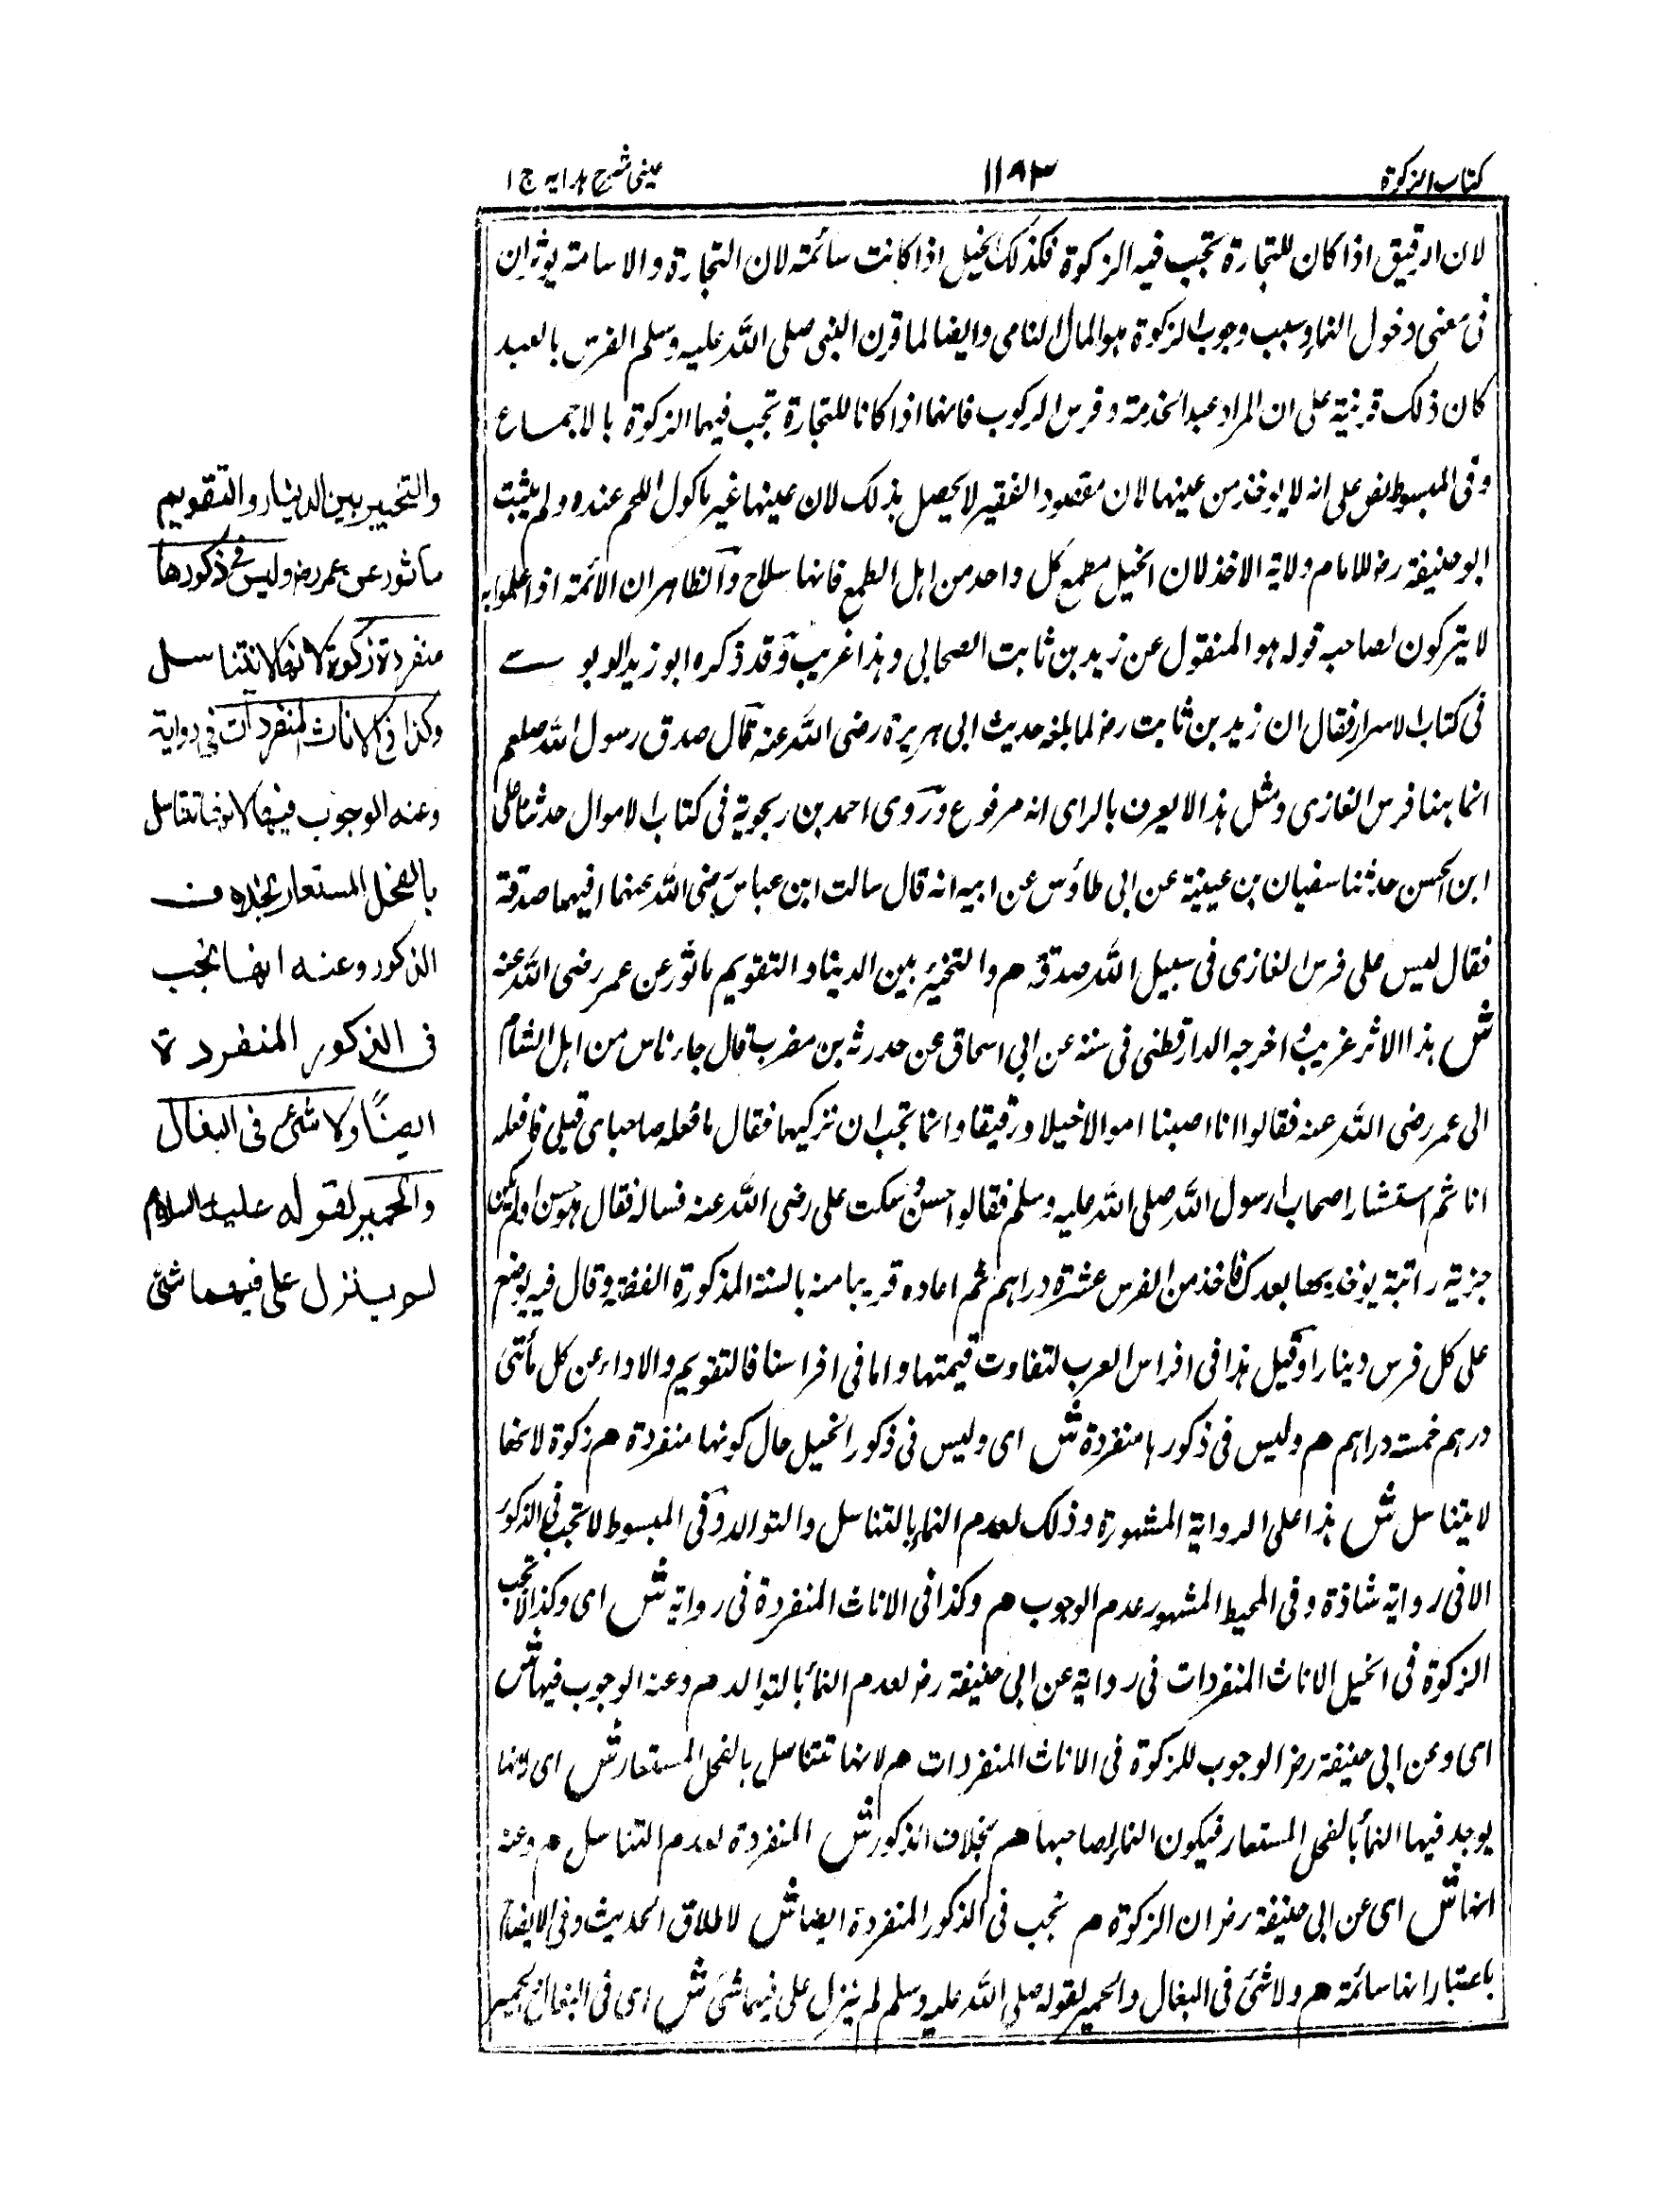 كتاب الزكوة
١١٩٣
عينى شرح هدايه ج ١
لان الرقيق اذا كان للتجارة تجب فيه الزكوة فكذلك الخيل اذا كانت سائمة لان التجارة والاسامة يوثران
فى معنى دخول النماء وسبب وجوب الزكوة هو المال النامى وايضا لما قرن النبى صلى الله عليه وسلم الفرس بالعبد
كان ذلك قرينة على ان المراد عبد الخدمة وفرس الركوب فانهما اذا كانا للتجارة تجب فيهما الزكوة بالاجماع
وفى المبسوط نص على انه لا يوخذ من عينها لان مقصود الفقير لا يحصل بذلك لان عينها غير ماكول اللحم عنده ولم يثبت
ابو حنيفة رض للامام ولاية الاخذ لان الخيل مطمع كل واحد من اهل الطمع فانها سلاح والظاهر ان الائمة اذا علموا به
لا يتركون لصاحبه قوله هو المنقول عن زيد بن ثابت الصحابى وهذا غريب وقد ذكره ابو زيد الدبوسے
فى كتاب الاسرار فقال ان زيد بن ثابت رض لما بلغه حديث ابى هريرة رضى الله عنه قال صدق رسول الله صلعم
انما هنا فرس الغازى ومثل هذا لا يعرف بالراى انه مرفوع وروى احمد بن زنجوية فى كتاب الاموال حدثنا على
ابن الحسن حدثنا سفيان بن عيينة عن ابى طاؤس عن ابيه انه قال سالت ابن عباس رضى الله عنهما افيهما صدقة
فقال ليس على فرس الغازى فى سبيل الله صدقة هم والتخيير بين الدينار والتقويم ماثور عن عمر رضى الله عنه
ش هذا الاثر غريب اخرجه الدارقطنى فى سننه عن ابى اسحاق عن حدرثه بن مضرب قال جاء ناس من اهل الشام
الى عمر رضى الله عنه فقالوا انا اصبنا اموالا خيلا ورقيقا وانما تجب ان نزكيها فقال ما فعله صاحباى قبلى فافعله
انا ثم استشار اصحاب رسول الله صلى الله عليه وسلم فقالوا حسن وسكت على رضى الله عنه فساله فقال هو حسن لو لم يكن
جزية راتبة يوخذ بها بعدك فاخذ من الفرس عشرة دراهم ثم اعاده قريبا منه بالسنة المذكورة القضة وقال فيه يوضع
على كل فرس دينارا وقيل هذا فى افراس العرب لتفاوت قيمتها واما فى افراسنا فالتقويم والاداء عن كل مأتى
درهم خمسة دراهم هم وليس فى ذكورها منفردة ش اى وليس فى ذكور الخيل حال كونها منفردة هم زكوة لانها
لا يتناسل ش هذا على الرواية المشهورة وذلك لعدم النماء بالتناسل والتوالد وفى المبسوط لا تجب فى الذكور
الا فى رواية شاذة وفى المحيط المشهور عدم الوجوب هم وكذا فى الاناث المنفردة فى رواية ش اى وكذا لا تجب
الزكوة فى الخيل الاناث المنفردات فى رواية عن ابى حنيفة رض لعدم النماء بالتوالد هم وعنه الوجوب فيها ش
اى وعن ابى حنيفة رض الوجوب للزكوة فى الاناث المنفردات هم لانها تتناسل بالفحل المستعار ش اى لانها
يوجد فيها النماء بالفحل المستعار فيكون النماء لصاحبها هم بخلاف الذكور ش المنفردة لعدم التناسل هم وعنه
انها ش اى عن ابى حنيفة رض ان الزكوة هم تجب فى الذكور المنفردة ايضا ش لاطلاق الحديث وفى الايضاح
باعتبار انها سائمة هم ولا شئ فى البغال والحمير لقوله صلى الله عليه وسلم لم ينزل على فيهما شئ ش اى فى البغال والحمير
والتخيير بين الدينار والتقويم
ماثور عن عمر رض وليس فى ذكورها
منفردة زكوة لانها لا تتناسل
وكذا فى الاناث المنفردات فى رواية
وعنه الوجوب فيها لانها تتناسل
بالفحل المستعار بخلاف
الذكور وعنه انها تجب
فى الذكور المنفردة
ايضًا ولا شئ فى البغال
والحمير لقوله عليه السلام
لم ينزل على فيهما شئ